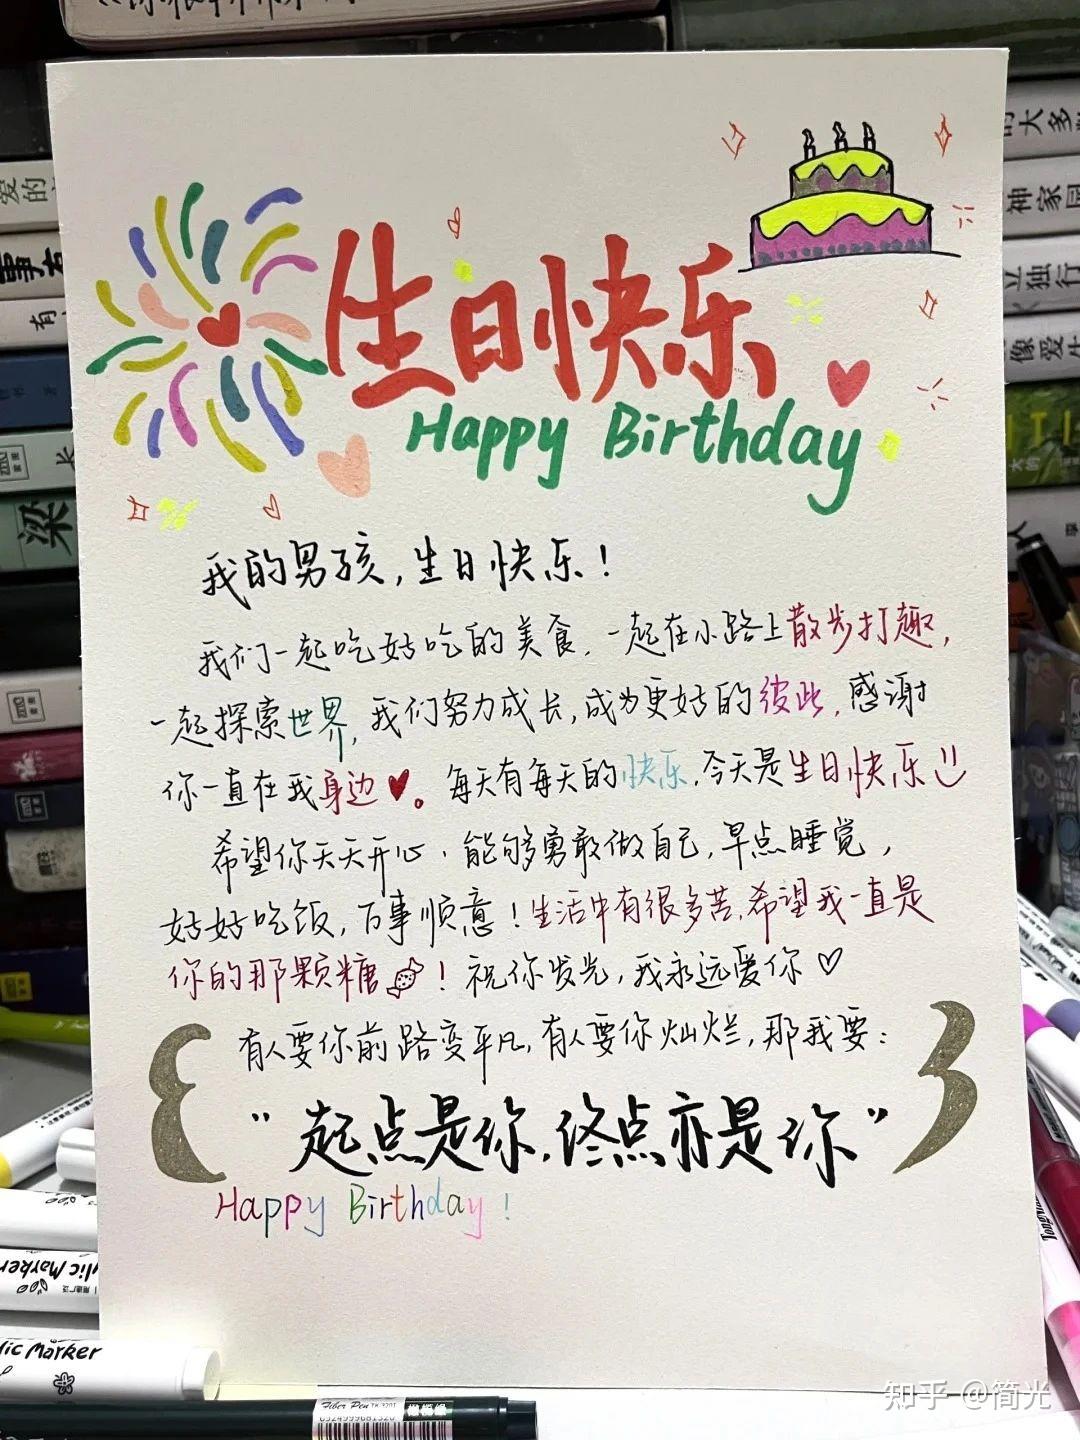 生日快乐
Happy Birthday
我的男孩,生日快乐!
我们一起吃好吃的美食,一起在小路上散步打趣,
一起探索世界,我们努力成长,成为更好的彼此,感谢
你一直在我身边♥。每天有每天的快乐,今天是生日快乐
希望你天天开心,能够勇敢做自己,早点睡觉,
好好吃饭,万事顺意!生活中有很多苦,希望我一直是
你的那颗糖!祝你发光,我永远爱你♡
有人要你前路变平凡,有人要你灿烂,那我要:
“起点是你,终点亦是你”
Happy Birthday!
爱的
有
梁
长
大多
神家园
立独行
像爱生
人
Marker
lic Marker
Fiber Pen
知乎 @简光